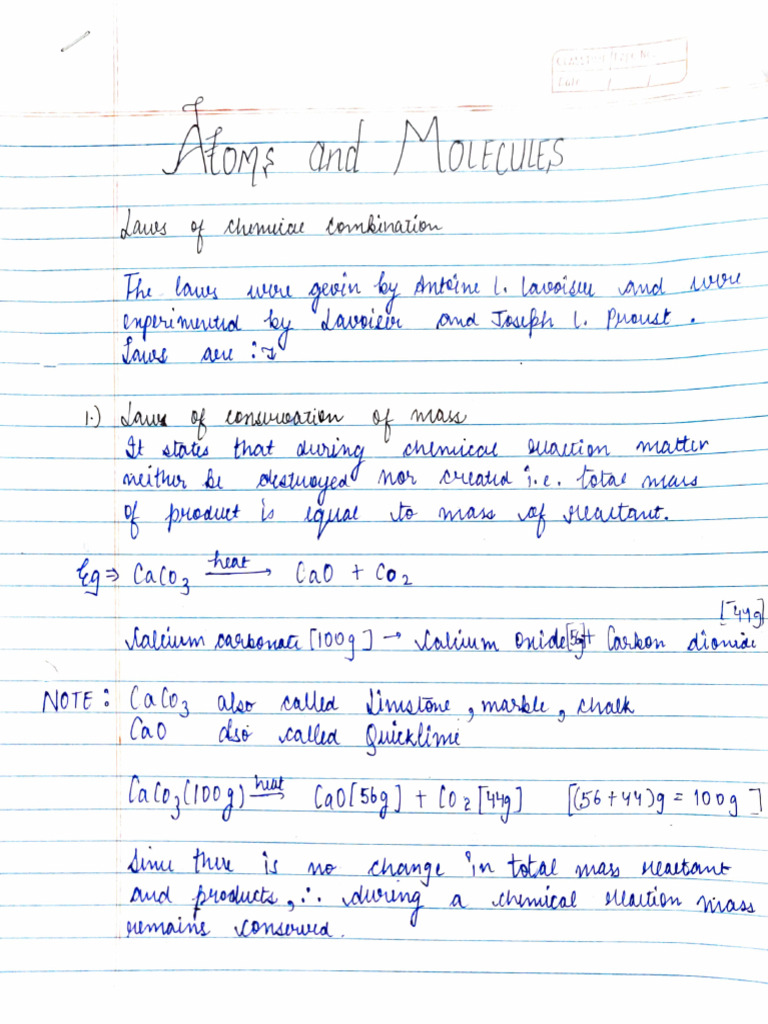 Atoms and MOLECULES
Laws of chemical combination
The laws were gevin by Antoine l. lavoisier and were
experimented by Lavoisier and Joseph l. Proust.
Laws are :→
1.) Laws of conservation of mass
It states that during chemical reaction matter
neither be destroyed nor created i.e. total mass
of product is equal to mass of reactant.
Eg ⇒ CaCO3 heat → CaO + CO2
Calcium carbonate [100g] → Calcium oxide [56g] + Carbon dioxide [44g]
NOTE : CaCO3 also called limstone, marble, chalk
CaO also called Quicklime
CaCO3(100g) heat → CaO[56g] + CO2 [44g] [(56+44)g = 100g]
Sinu there is no change in total mass reactant
and products, ∴ during a chemical reaction mass
remains conserved.